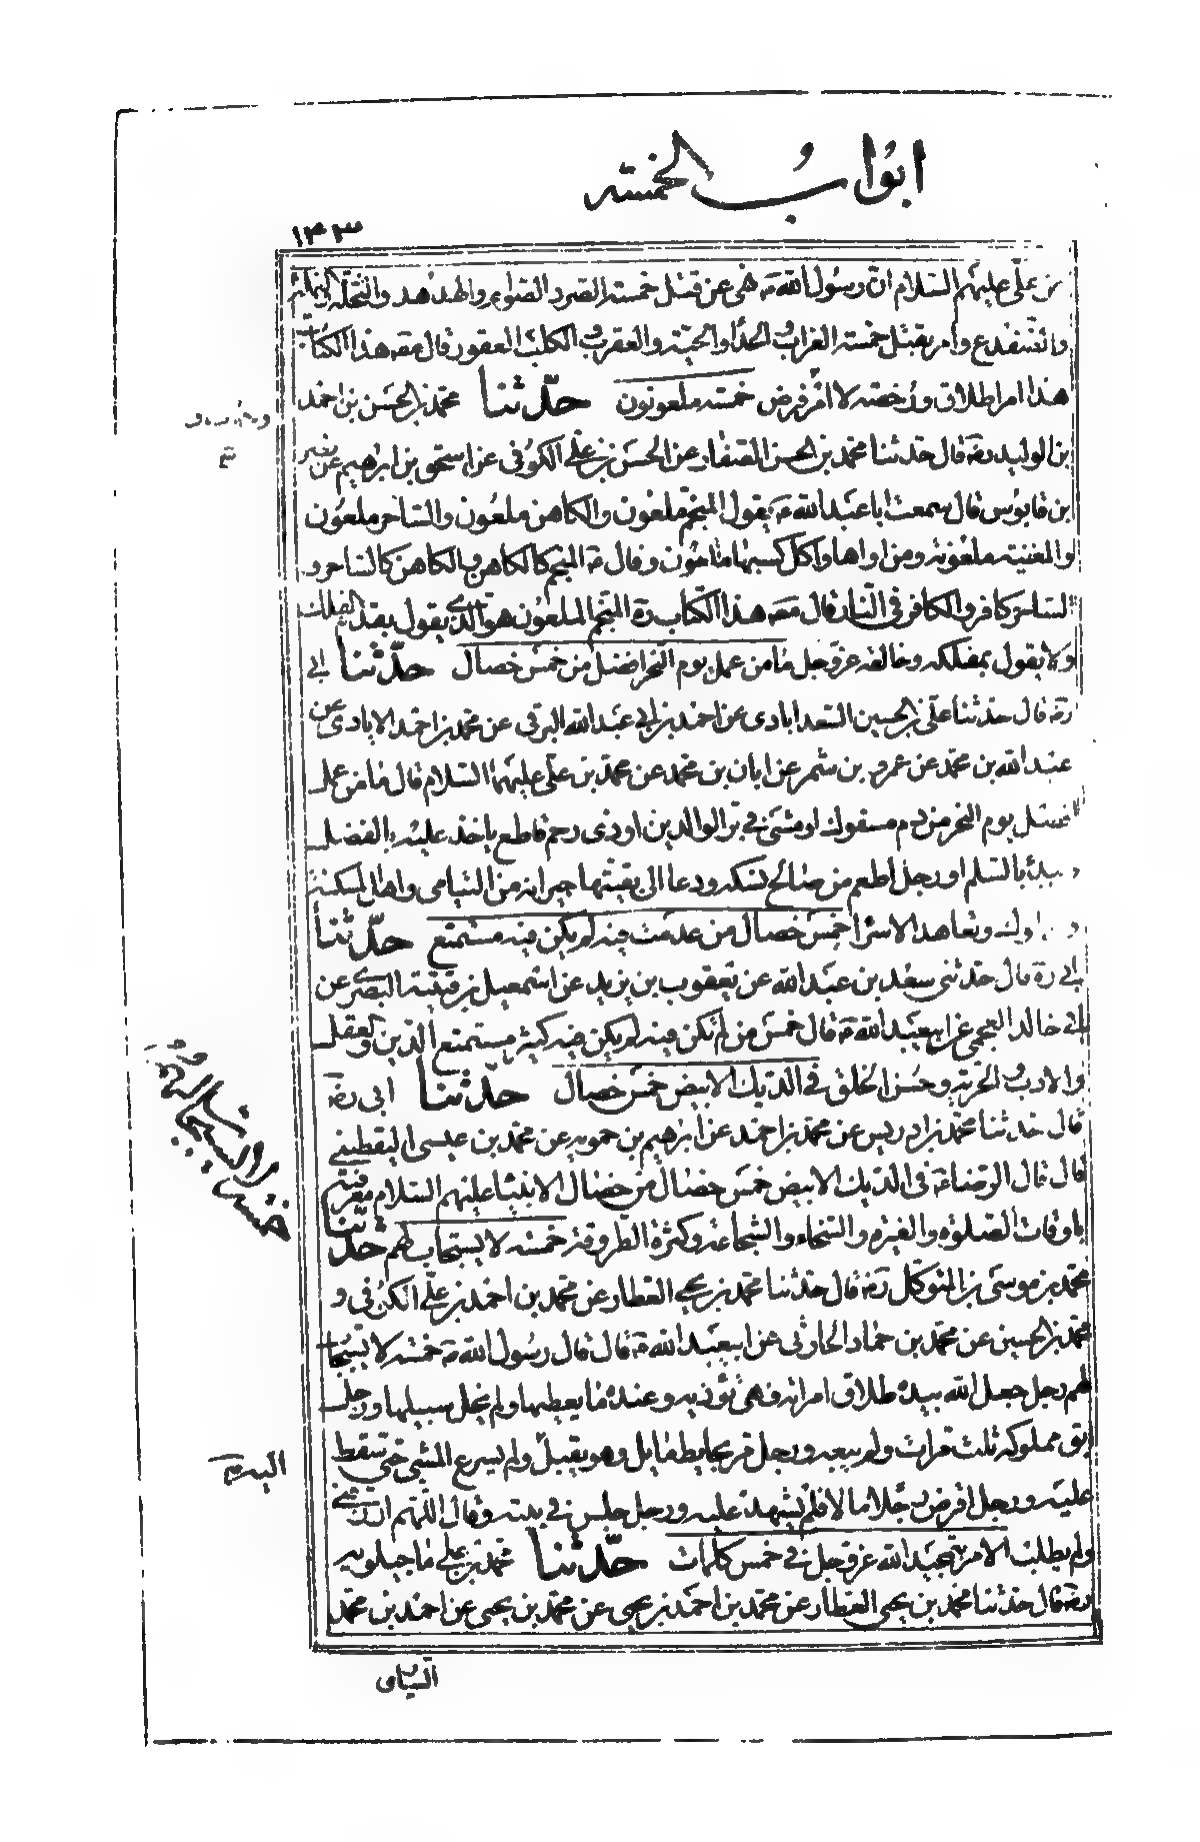 ابواب الخمسة
١٤٣
بن علي عليهم السلام ان رسول الله ص نهى عن قتل خمسة الصرد الصوام والهدهد والنحلة والنملة
والضفدع وامر بقتل خمسة الغراب والحدأ والحية والعقرب والكلب العقور قال مصه هذا الكتاب
هذا امر اطلاق ورخصة لا امر فرض خمسة ملعونون حدّثنا محمد بن الحسن بن احمد
بن الوليد ره قال حدثنا محمد بن الحسن الصفار عن الحسن بن علي الكوفي عن اسحق بن ابرهيم عن نصر
بن قابوس قال سمعت ابا عبد الله ع يقول المنجم ملعون والكاهن ملعون والساحر ملعون
والمغنية ملعونة ومن اواها واكل كسبها ملعون وقال ع المنجم كالكاهن والكاهن كالساحر و
الساحر كافر والكافر في النار قال مصه هذا الكتاب ره المنجم الملعون هو الذي يقول بقدم الفلك
ولا يقول بمفلكه وخالقه عز وجل ما من عمل يوم النحر افضل من خمس خصال حدّثنا ابي
ره قال حدثنا علي بن الحسين السعد ابادى عن احمد بن ابي عبد الله البرقي عن محمد بن احمد الابادى عن
عبد الله بن محمد عن عمرو بن شمر عن ابان بن محمد عن محمد بن علي عليهما السلام قال ما من عمل
افضل يوم النحر من دم مسفوك او مشى في بر الوالدين او ذى رحم قاطع ياخذ عليه بالفضل
ويبدأ بالسلم او رجل اطعم من صالح نسكه ودعا الى بقيتها جيرانه من اليتامى واهل المسكنة
والمملوك وتعاهد الاسرا خمس خصال من عدمت فيه لم يكن فيه مستمتع حدّثنا
ابي ره قال حدثني سعد بن عبد الله عن يعقوب بن يزيد عن اسمعيل بن قتيبة البصري عن
ابي خالد العجمي عن ابيعبد الله ع قال خمس من لم تكن فيه لم يكن فيه كثير مستمتع الدين والعقل
والادب والحرية وحسن الخلق في الديك الابيض خمس خصال حدّثنا ابي ره
قال حدثنا محمد بن ادريس عن محمد بن احمد عن ابرهيم بن حمويه عن محمد بن عيسى اليقطيني
قال قال الرضا ع في الديك الابيض خمس خصال من خصال الانبياء عليهم السلام معرفته
باوقات الصلوة والغيرة والسخاء والشجاعة وكثرة الطروقة خمسة لا يستجاب لهم حدّثنا
محمد بن موسى بن المتوكل ره قال حدثنا محمد بن يحيى العطار عن محمد بن احمد بن علي الكوفي و
محمد بن الحسين عن محمد بن حماد الحارثي عن ابيعبد الله ع قال قال رسول الله ص خمسة لا يستجاب
لهم رجل جعل الله بيده طلاق امراته وهي تؤذيه وعنده ما يعطيها ولم يخل سبيلها ورجل
ابق مملوكه ثلث مرات ولم يبعه ورجل مر بحايط مايل وهو يقبل ولم يسرع المشي حتى سقط
عليه ورجل اقرض رجلا مالا فلم يشهد عليه ورجل جلس في بيته وقال اللهم ارزقني
ولم يطلب الامر بتمجيد الله عز وجل في خمس كلمات حدّثنا محمد بن علي ماجيلويه
ره قال حدثنا محمد بن يحيى العطار عن محمد بن احمد بن يحيى عن محمد بن يحيى عن احمد بن محمد